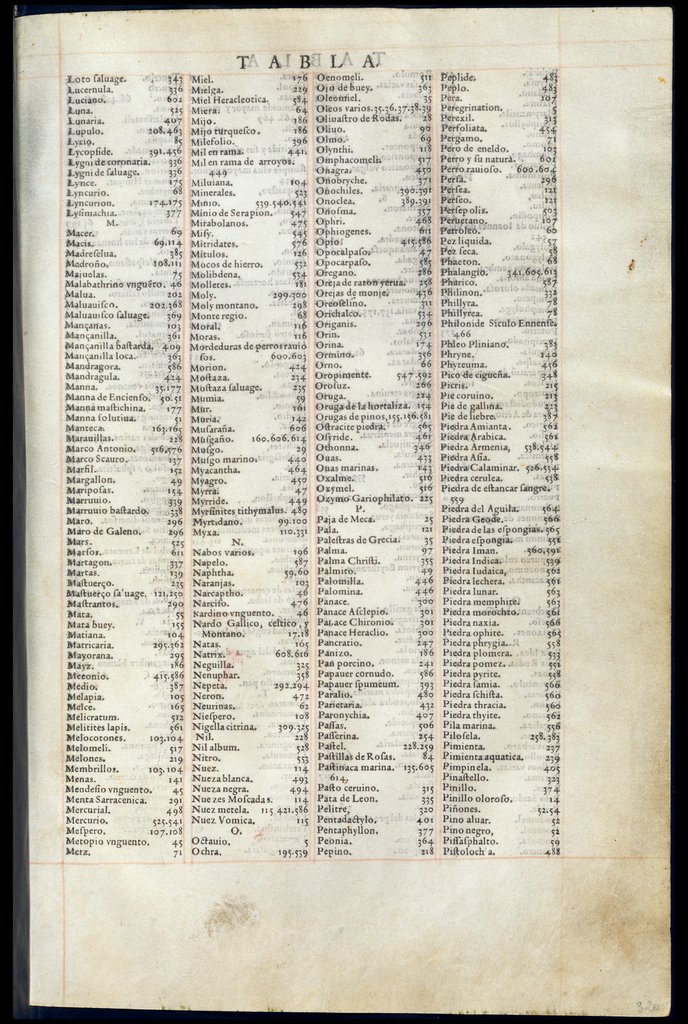 TABLA
Loto ſaluage. 343
Lucernula. 336
Luciano. 602
Luna. 525
Lunaria. 407
Lupulo. 208.463
Lycio. 85
Lycopſide. 391.456
Lygni de coronaria. 336
Lygni de ſaluage. 336
Lynce. 175
Lyncurio. 68
Lyncurion. 174.175
Lyſimachia. 377
M.
Macer. 69
Macis. 69.114
Madreſelua. 385
Madroño. 108.111
Majuelas. 75
Malabathrino vnguẽto. 46
Malua. 202
Maluauiſco. 202.368
Maluauiſco ſaluage. 369
Mançanas. 103
Mançanilla. 361
Mançanilla baſtarda. 409
Mançanilla loca. 363
Mandragora. 586
Mandragula. 424
Manna. 35.177
Manna de Encienſo. 50.51
Manna maſtichina. 177
Manna ſolutiua. 51
Manteca. 163.165
Marauillas. 228
Marco Antonio. 516.576
Marco Scauro. 137
Marfil. 152
Margallon. 49
Maripoſas. 154
Marruuio. 339
Marruuio baſtardo. 338
Maro. 296
Maro de Galeno. 296
Mars. 525
Marſos. 611
Martagon. 337
Martas. 139
Maſtuerço. 235
Maſtuerço ſa'uage. 121.250
Maſtrantos. 290
Mata. 55
Mata buey. 155
Matiana. 104
Matricaria. 295.362
Mayorana. 295
Mayz. 186
Meconio. 415.586
Medio. 387
Melapia. 105
Melce. 165
Melicratum. 512
Melitites lapis. 561
Melocotones. 103.104
Melomeli. 517
Melones. 219
Membrillos. 103.104
Menas. 141
Mendeſio vnguento. 45
Menta Sarracenica. 291
Mercurial. 498
Mercurio. 525.541
Meſpero. 107.108
Metopio vnguento. 45
Metz. 71
Miel. 176
Mielga. 229
Miel Heracleotica. 584
Miera. 64
Mijo. 186
Mijo turqueſco. 186
Milefolio. 396
Mil en rama. 441.
Mil en rama de arroyos.
449
Miluiana. 104
Minerales. 523
Minio. 539.540.541
Minio de Serapion. 547
Mirabolanos. 475
Miſy. 545
Mitridates. 576
Mitulos. 126
Mocos de hierro. 532
Molibdena. 534
Molletes. 181
Moly. 299.300
Moly montano. 298
Monte regio. 68
Moral. 116
Moras. 116
Mordeduras de perros rauio
ſos. 600.603
Morion. 424
Moſtaza. 234
Moſtaza ſaluage. 235
Mumia. 59
Mur. 161
Muria. 142
Muſaraña. 606
Muſgaño. 160.606.614
Muſgo. 29
Muſgo marino. 440
Myacantha. 464
Myagro. 450
Myrra. 47
Myrride. 449
Myrſinites tithymalus. 489
Myrtidano. 99.100
Myxa. 110.331
N.
Nabos varios. 196
Napelo. 587
Naphtha. 59.60
Naranjas. 103
Narcaptho. 46
Narciſo. 476
Nardino vnguento. 46
Nardo Gallico, celtico, y
Montano. 17.18
Natas. 165
Natrix. 608.616
Neguilla. 325
Nenuphar. 358
Nepeta. 292.294
Neron. 472
Neurinas. 62
Nieſpero. 108
Nigella citrina. 309.325
Nil. 228
Nil album. 528
Nitro. 553
Nuez. 114
Nueza blanca. 493
Nueza negra. 494
Nuezes Moſcadas. 114
Nuez metela. 115 421.586
Nuez Vomica. 115
O.
Octauio. 5
Ochra. 195.539
Oenomeli. 511
Ojo de buey. 363
Oleomiel. 35
Oleos varios. 35.36.37.38.39
Oliuaſtro de Rodas. 28
Oliuo. 90
Olmo. 69
Olynthi. 118
Omphacomeli. 517
Onagra. 450
Onobryche. 371
Onochiles. 390.391
Onoclea. 389.391
Onoſma. 357
Ophri. 468
Ophiogenes. 611
Opio. 415.586
Opocalpaſo. 47
Opocarpaſo. 585
Oregano. 286
Oreja de raton yerua. 258
Orejas de monje. 436
Oreoſelino. 311
Orichalco. 534
Origanis. 296
Orin. 531
Orina. 174
Ormino. 356
Orno. 66
Oropimente. 547.592
Orofuz. 266
Oruga. 224
Oruga de la hortaliza. 154
Orugas de pinos, 155.156.581
Oſtracite piedra. 565
Oſyride. 461
Othonna. 346
Ouas. 433
Ouas marinas. 143
Oxalme. 516
Oxymel. 516
Ozymo Gariophilato. 225
P.
Paja de Meca. 25
Pala. 121
Paleſtras de Grecia. 35
Palma. 97
Palma Chriſti. 355
Palmito. 49
Palomilla. 446
Palomina. 446
Panace. 300
Panace Aſclepio. 301
Panace Chironio. 301
Panace Heraclio. 300
Pancratio. 247
Panizo. 186
Pan porcino. 241
Papauer cornudo. 586
Papauer ſpumeum. 393
Paralio. 480
Parietaria. 432
Paronychia. 407
Paſſas. 506
Paſſerina. 254
Paſtel. 228.259
Paſtillas de Roſas. 84
Paſtinaca marina. 135.605
614,
Paſto ceruino. 315
Pata de Leon. 335
Pelitre, 320
Pentadactylo. 401
Pentaphyllon. 377
Peonia. 364
Pepino. 218
Peplide. 483
Peplo. 483
Pera. 107
Peregrination. 5
Perexil. 313
Perfoliata. 454
Pergamo. 71
Pero de eneldo. 103
Perro y ſu natura. 601
Perro rauioſo. 600.604
Perſa. 296
Perſea. 121
Perſeo. 121
Perſepolis. 503
Peruetano. 107
Petroleo. 60
Pez liquida. 57
Pez ſeca. 58
Phaeton. 68
Phalangio. 341.605.613
Pharico. 587
Philinon. 332
Phillyra. 78
Phillyrea. 78
Philonide Siculo Ennenſe.
466
Phleo Pliniano. 383
Phryne. 140
Phyteuma. 456
Pico de cigueña. 348
Picris. 215
Pie coruino. 213
Pie de gallina. 223
Pie de liebre. 387
Piedra Amianta. 562
Piedra Arabica. 561
Piedra Armenia, 538.544
Piedra Aſia. 558
Piedra Calaminar. 526.534
Piedra cerulea. 538
Piedra de eſtancar ſangre.
559
Piedra del Aguila. 564
Piedra Geode. 566
Piedra de las eſpongias. 565
Piedra eſpongia. 558
Piedra Iman. 560.591
Piedra Indica. 539
Piedra Iudaica. 562
Piedra lechera. 561
Piedra lunar. 563
Piedra memphite. 563
Piedra morochto. 561
Piedra naxia. 566
Piedra ophite. 565
Piedra phrygia. 558
Piedra plomera. 533
Piedra pomez. 551
Piedra pyrite. 558
Piedra ſamia. 566
Piedra ſchiſta. 560
Piedra thracia. 560
Piedra thyite. 562
Pila marina. 556
Piloſela. 258.383
Pimienta. 237
Pimienta aquatica. 239
Pimpinela. 405
Pinaſtello. 323
Pinillo. 374
Pinillo oloroſo. 14
Piñones. 52.54
Pino aluar. 52
Pino negro, 52
Piſſaſphalto. 59
Piſtoloch a. 488